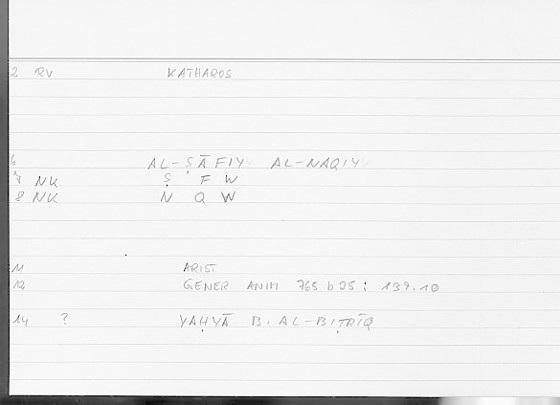 2 RV KATHAROS
6 AL-ṢĀFIY AL-NAQIY
7 NK Ṣ F W
8 NK N Q W
11 ARIST
12 GENER ANIM 765 b 25 : 139.10
14 ? YAḤYĀ B. AL-BIṬRĪQ